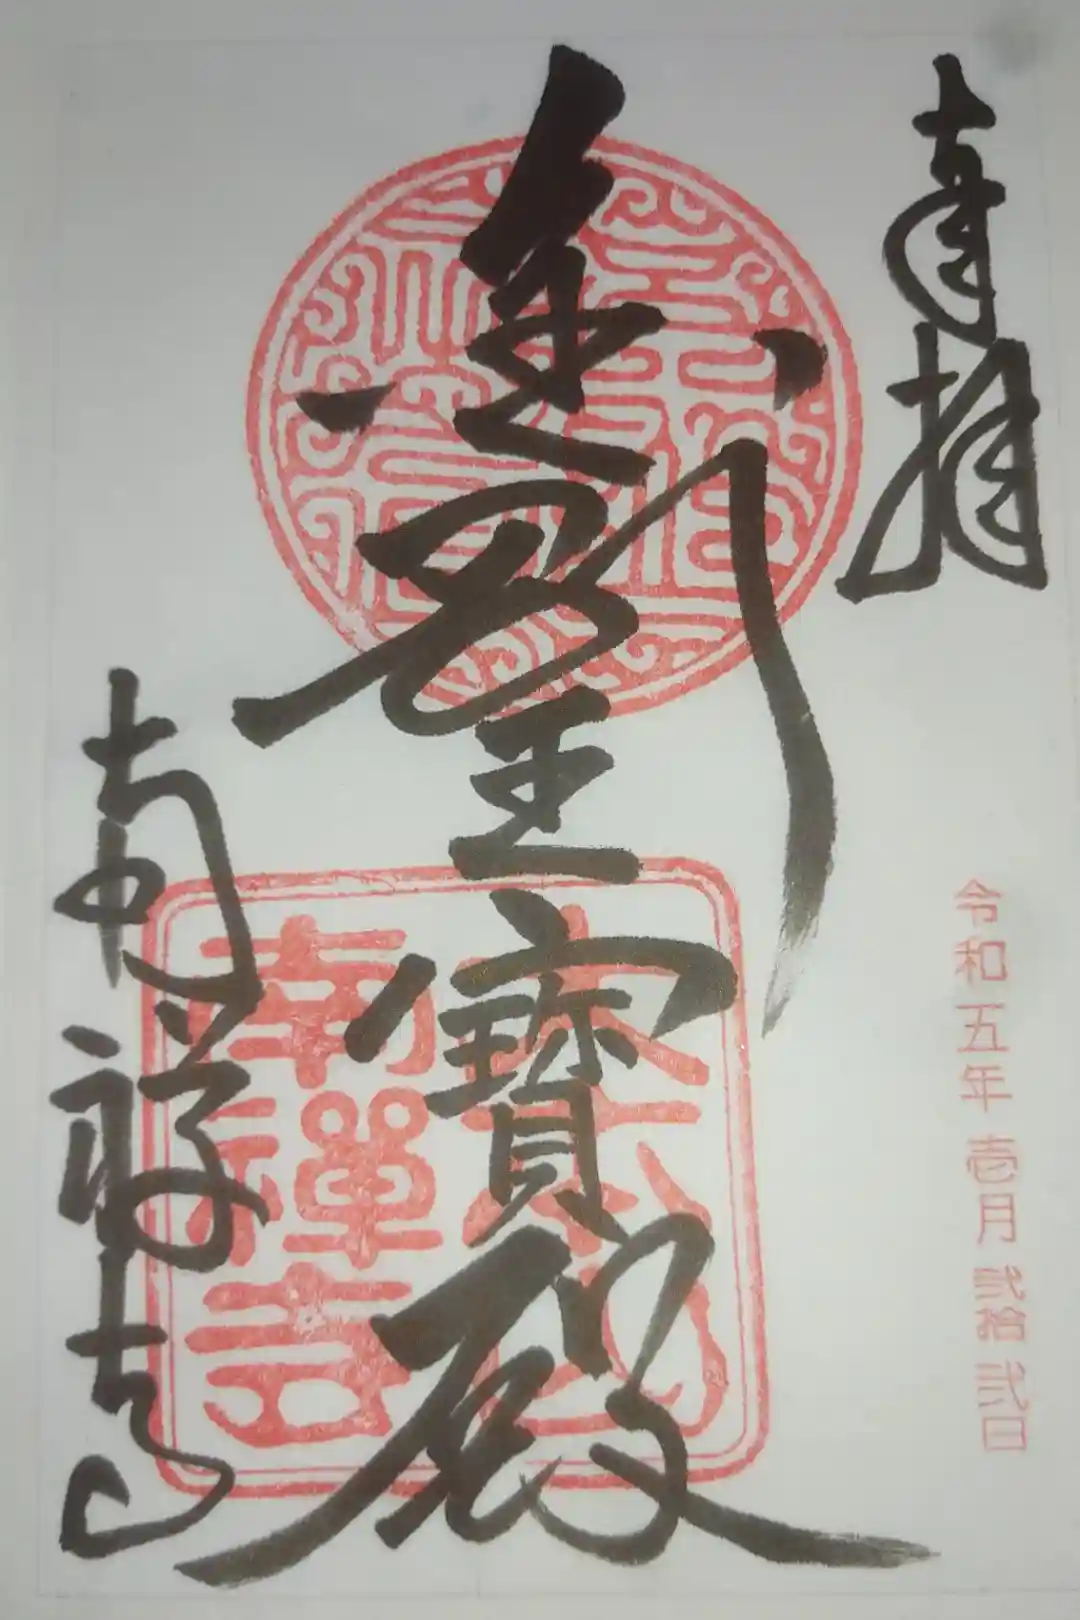 奉拝
令和五年壱月弐拾弐日
金剛王寶殿
大本山
南禪寺
南禅寺